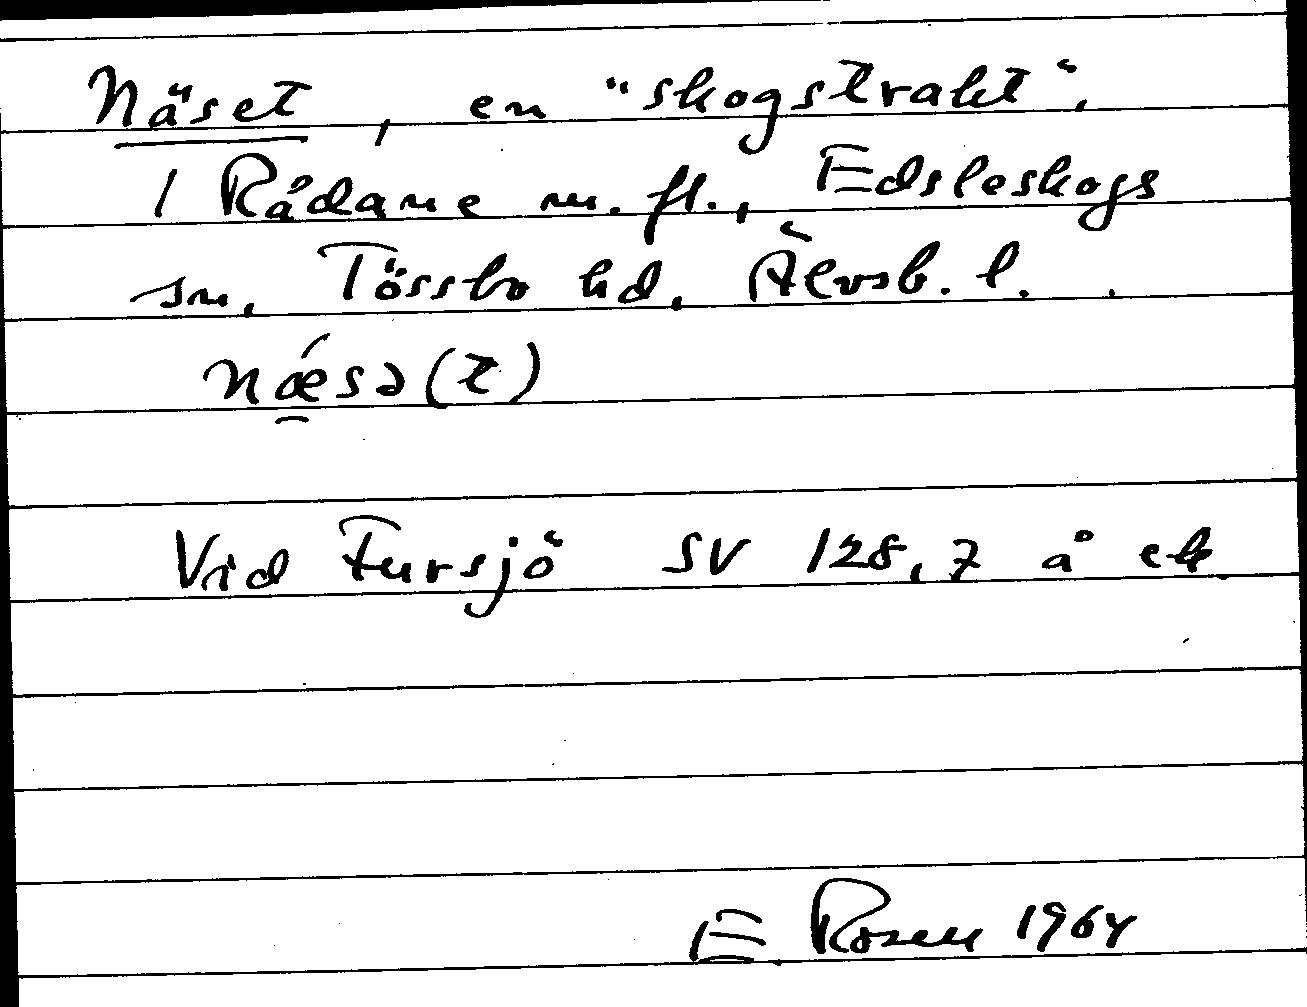 Näset, en "skogstrakt",
1 Rådane m. fl., Edsleskogs
sn, Tössbo hd, Älvsb. l.
nǽ̠sə(t)
Vid Fursjö SV 128,7 å ek
E. Rosell 1964